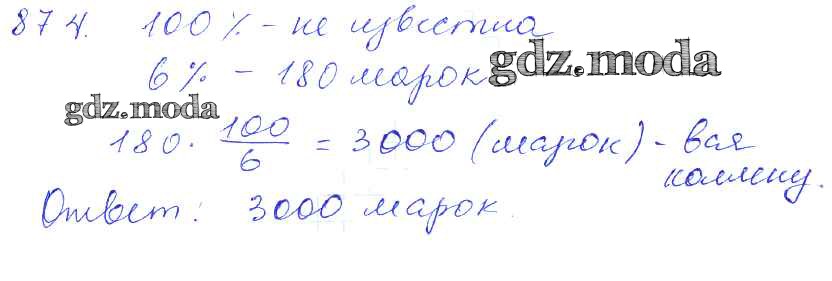 874. 100% - не известна
6% - 180 марок
gdz.moda
gdz.moda
180 · 100/6 = 3000 (марок) - вая
коллекц.
Ответ: 3000 марок.